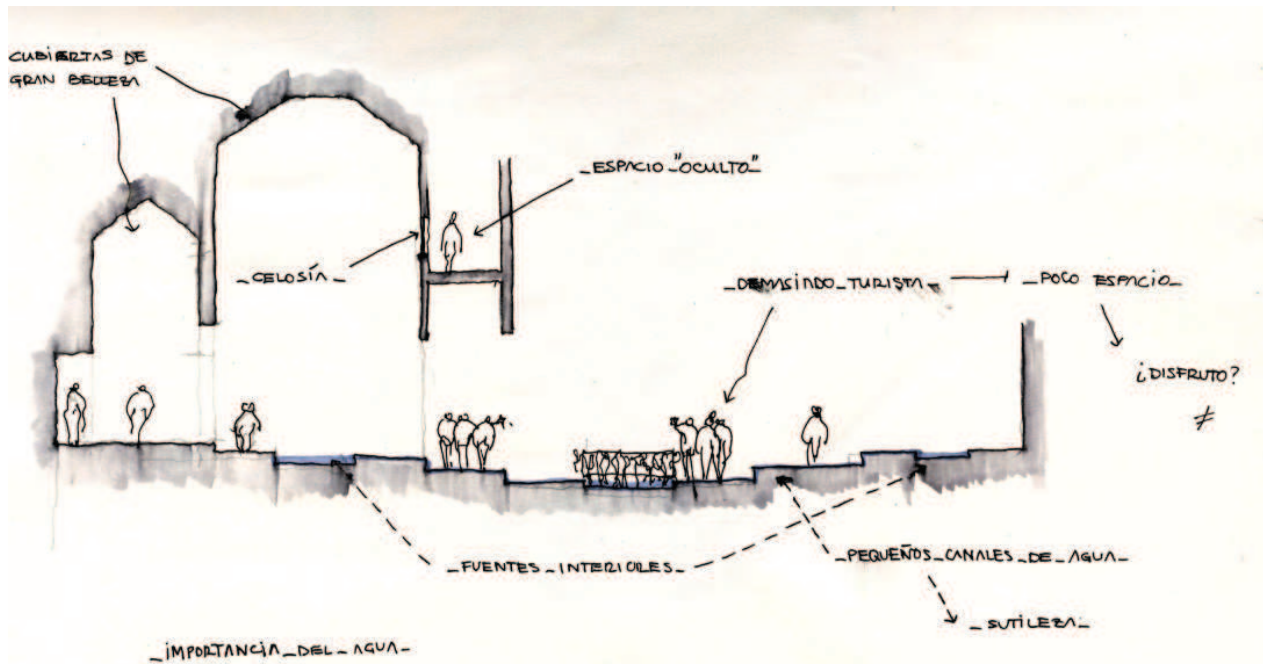 CUBIERTAS DE
GRAN BELLEZA
_ESPACIO_"OCULTO"
_CELOSÍA_
_DEMASIADO_TURISTA_
_POCO ESPACIO_
¿DISFRUTO?
≠
_FUENTES_INTERIORES_
_PEQUEÑOS_CANALES_DE_AGUA_
_SUTILEZA_
_IMPORTANCIA_DEL_AGUA_